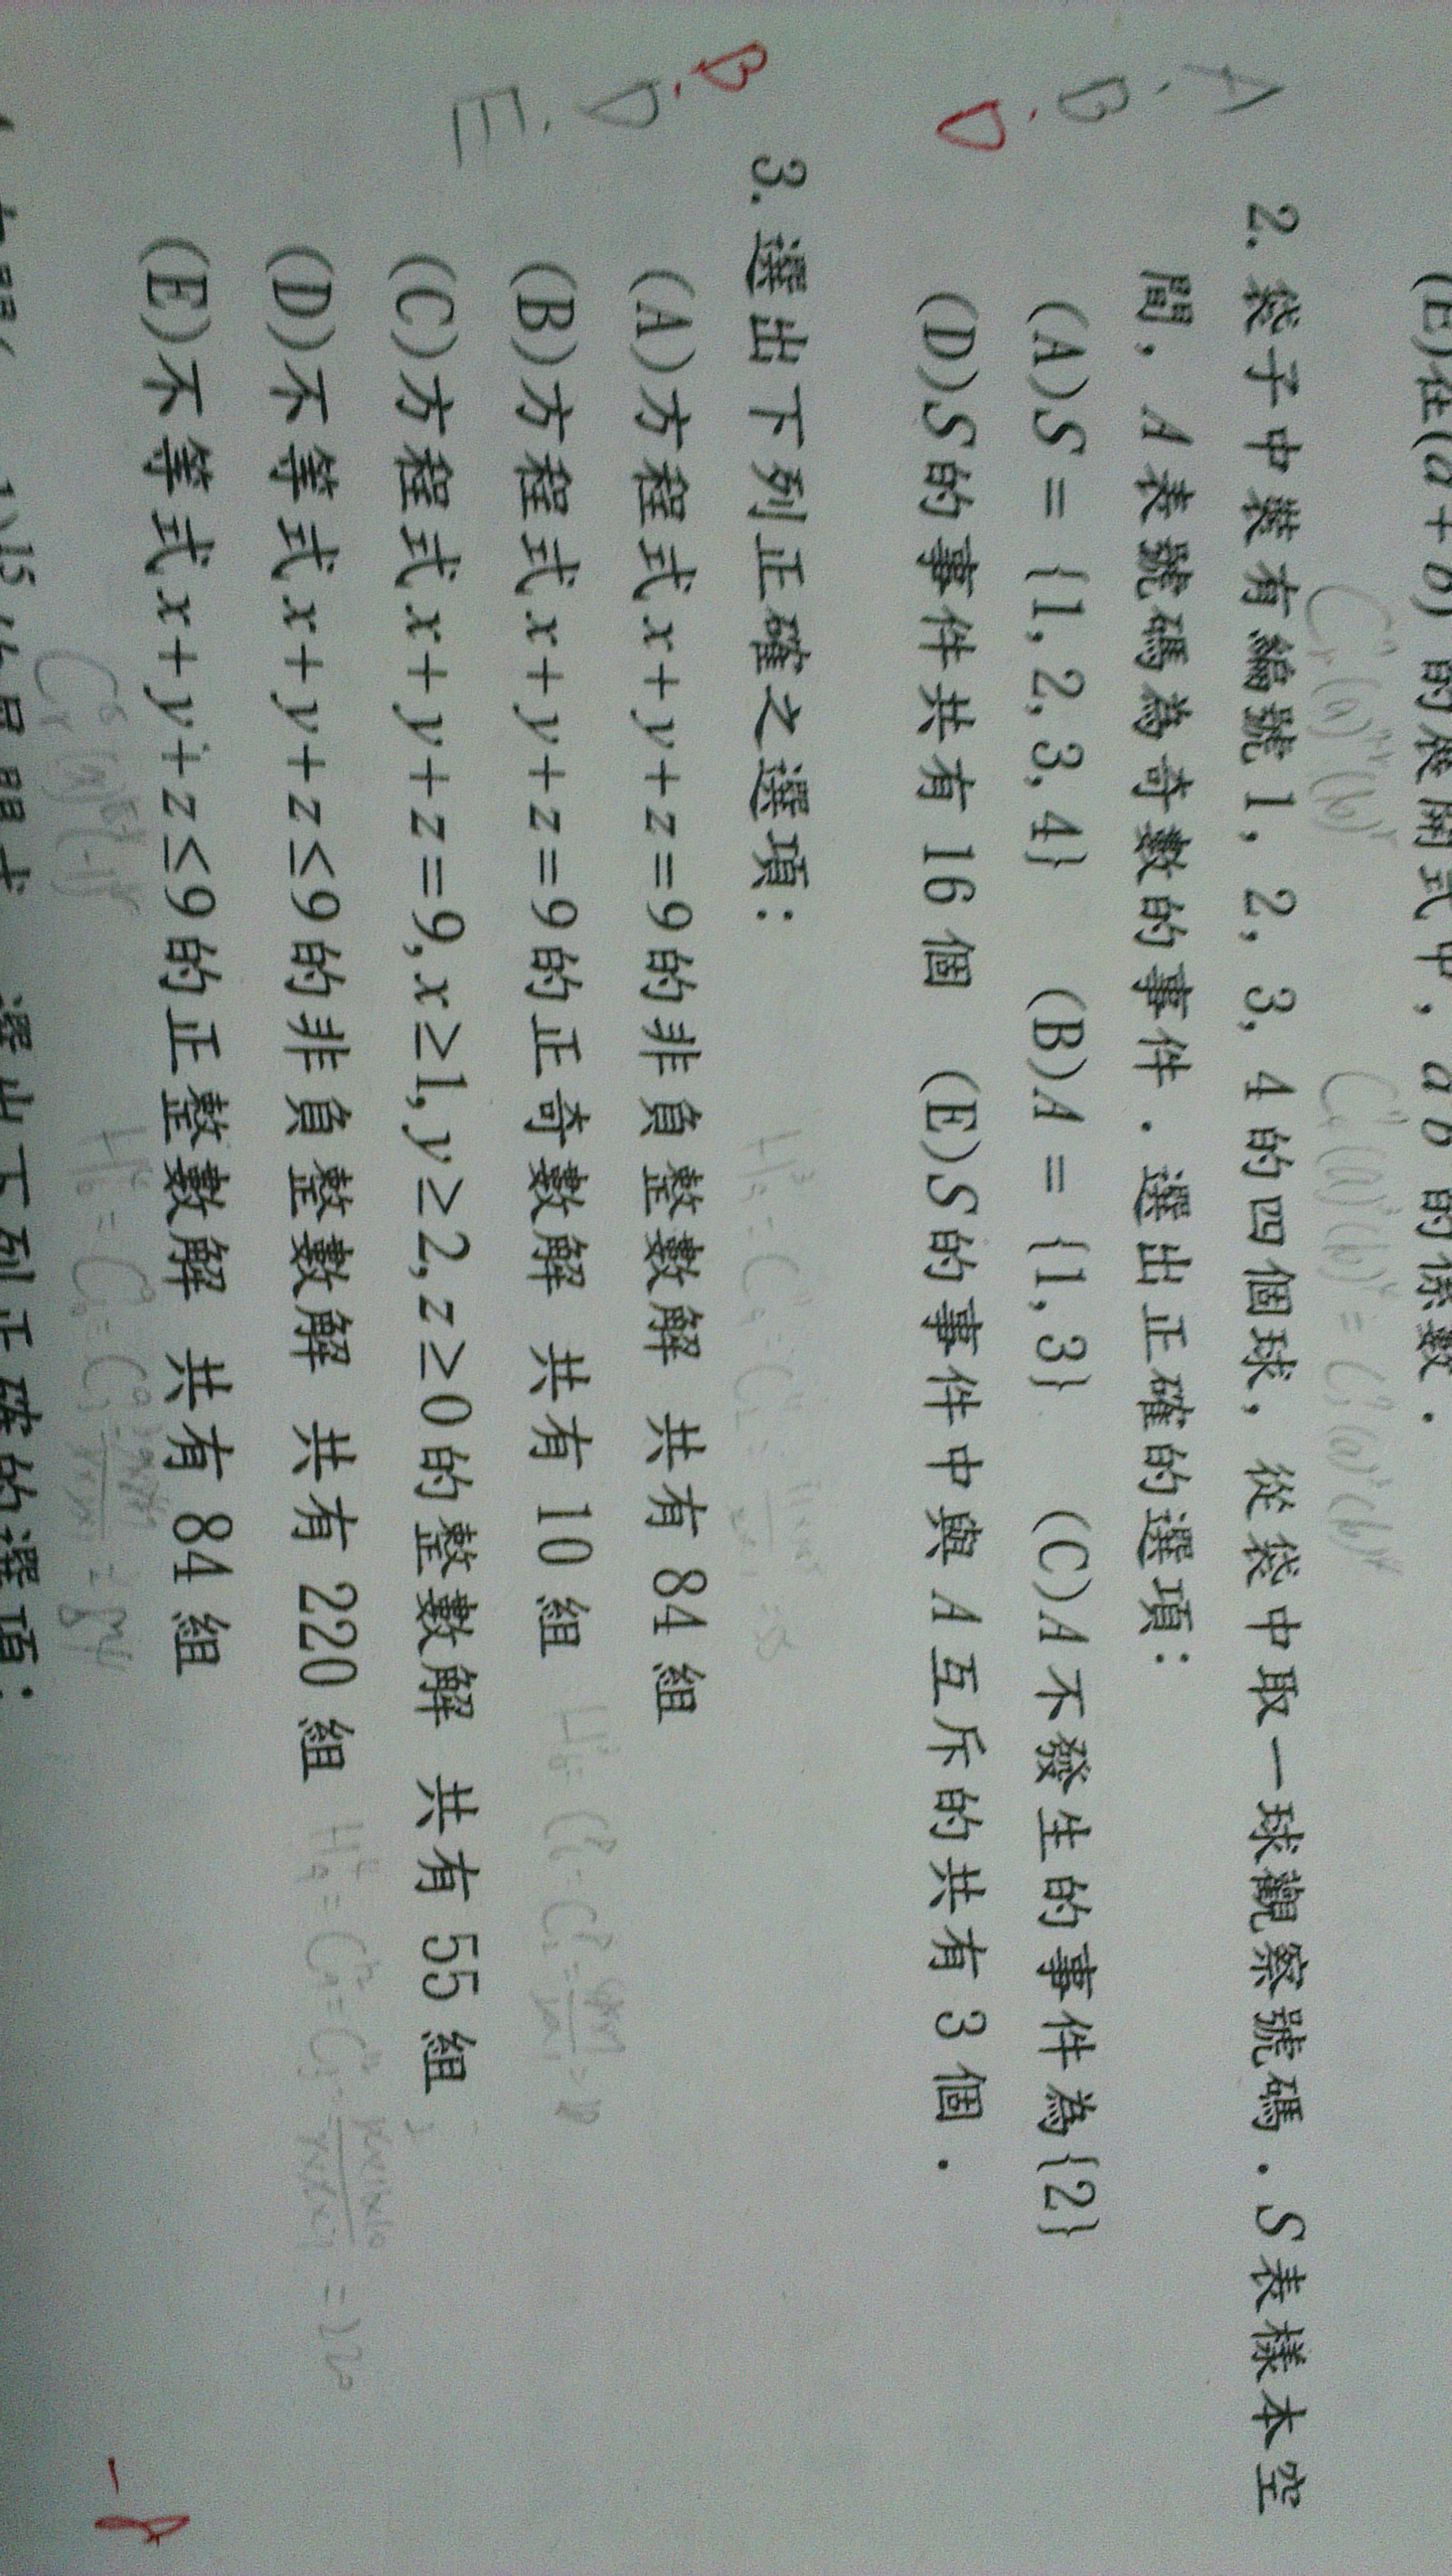 (E)在(a+b) 的展開式中, a b 的係數.
A、B、D
2. 袋子中裝有編號 1, 2, 3, 4 的四個球, 從袋中取一球觀察號碼. S表樣本空
間, A 表號碼為奇數的事件. 選出正確的選項:
(A)S = {1, 2, 3, 4} (B)A = {1, 3} (C)A不發生的事件為{2}
(D)S的事件共有 16 個 (E)S的事件中與 A 互斥的共有 3 個.
B、D、E
3. 選出下列正確之選項:
(A)方程式x+y+z=9的非負整數解 共有 84 組
(B)方程式x+y+z=9的正奇數解 共有 10 組
(C)方程式x+y+z=9, x≥1, y≥2, z≥0的整數解 共有 55 組
(D)不等式x+y+z≤9的非負整數解 共有 220 組
= 220
(E)不等式x+y+z≤9的正整數解 共有 84 組
= 84
選出下列正確的選項: